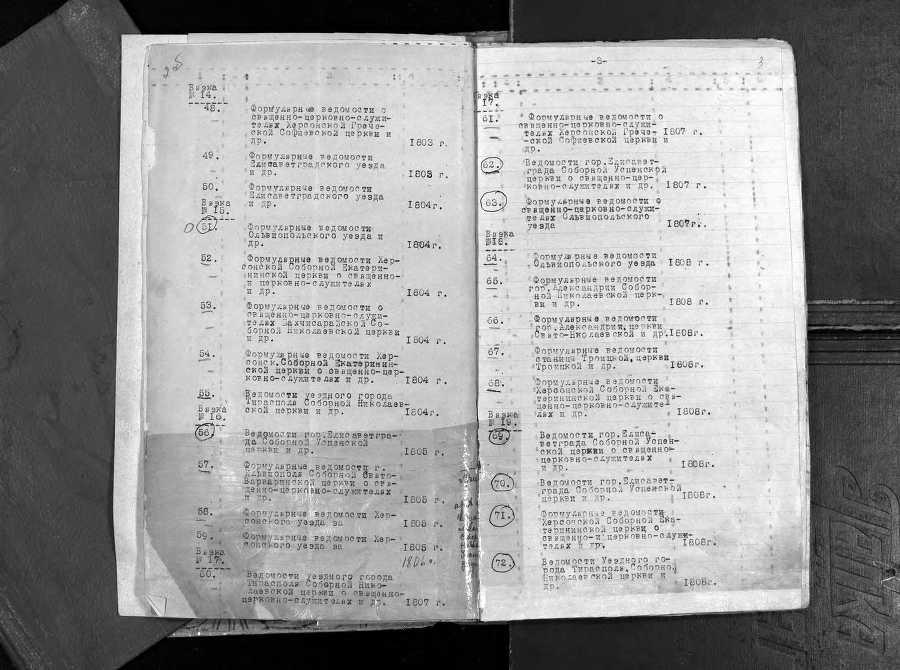 25
Вязка
№ 14.
48. Формулярные ведомости о
священно-церковно-служи-
телях Херсонской Грече-
ской Софиевской церкви и
др. 1803 г.
49. Формулярные ведомости
Елисаветградского уезда
и др. 1803 г.
50. Формулярные ведомости
Елисаветградского уезда
и др. 1804г.
Вязка
№ 15.
51. Формулярные ведомости
Ольвиопольского уезда и
др. 1804г.
52. Формулярные ведомости Хер-
сонской Соборной Екатери-
нинской церкви о священно-
и церковно-служителях
и др. 1804 г.
53. Формулярные ведомости о
священно-церковно-служи-
телях Бахчисарайской Со-
борной Николаевской церкви
и др. 1804 г.
54. Формулярные ведомости Хер-
сонск. Соборной Екатеринин-
ской церкви о священно-цер-
ковно-служителях и др. 1804 г.
55. Ведомости уездного города
Тирасполя Соборной Николаев-
ской церкви и др. 1804г.
Вязка
№ 16.
56. Ведомости гор.Елисаветгра-
да Соборной Успенской
церкви и др. 1805 г.
57. Формулярные ведомости г.
Соборной Свято-
Варваринской церкви о свя-
щенно-церковно-служителях
и др. 1805 г.
58. Формулярные ведомости Хер-
сонского уезда за 1805 г.
59. Формулярные ведомости Хер-
сонского уезда за 1805 г.
Вязка
№ 17.
60. Ведомости уездного города
Тирасполя Соборной Нико-
лаевской церкви о священно-
церковно-служителях и др. 1807 г.
-3-
3
Вязка
17.
61. Формулярные ведомости о
священно-церковно-служи-
телях Херсонской Грече-
-ской Софиевской церкви и
др. 1807 г.
62. Ведомости гор.Елисавет-
града Соборной Успенской
церкви о священно-цер-
ковно-служителях и др. 1807 г.
63. Формулярные ведомости о
священно-церковно-служи-
телях Ольвиопольского
уезда 1807г.
Вязка
№18.
64. Формулярные ведомости
Ольвиопольского уезда 1808 г.
65. Формулярные ведомости
гор.Александрии Собор-
ной Николаевской церк-
ви и др. 1808 г.
66. Формулярные ведомости
гор.Александрии, церкви
Свято-Нколаевской и др.1808г.
67. Формулярные ведомости
станицы Троицкой, церкви
Троицкой и др. 1808г.
68. Формулярные ведомости
Херсонской Соборной Ека-
терининской церкви о свя-
щенно-церковно-служите-
лях и др. 1808г.
Вязка
№ 19.
69. Ведомости гор.Елиса-
ветграда Соборной Успен-
ской церкви о священно-
церковно-служителях
и др. 1808г.
70. Ведомости гор.Елисавет-
града Соборной Успенской
и др. 1808г.
71. Формулярные ведомости
Херсонской Соборной Ека-
терининской церкви о
священно-и церковно-служи-
телях и др. 1808г.
72. Ведомости Уездного го-
рода Тирасполя,Соборной
Николаевской церкви и
др. 1808г.